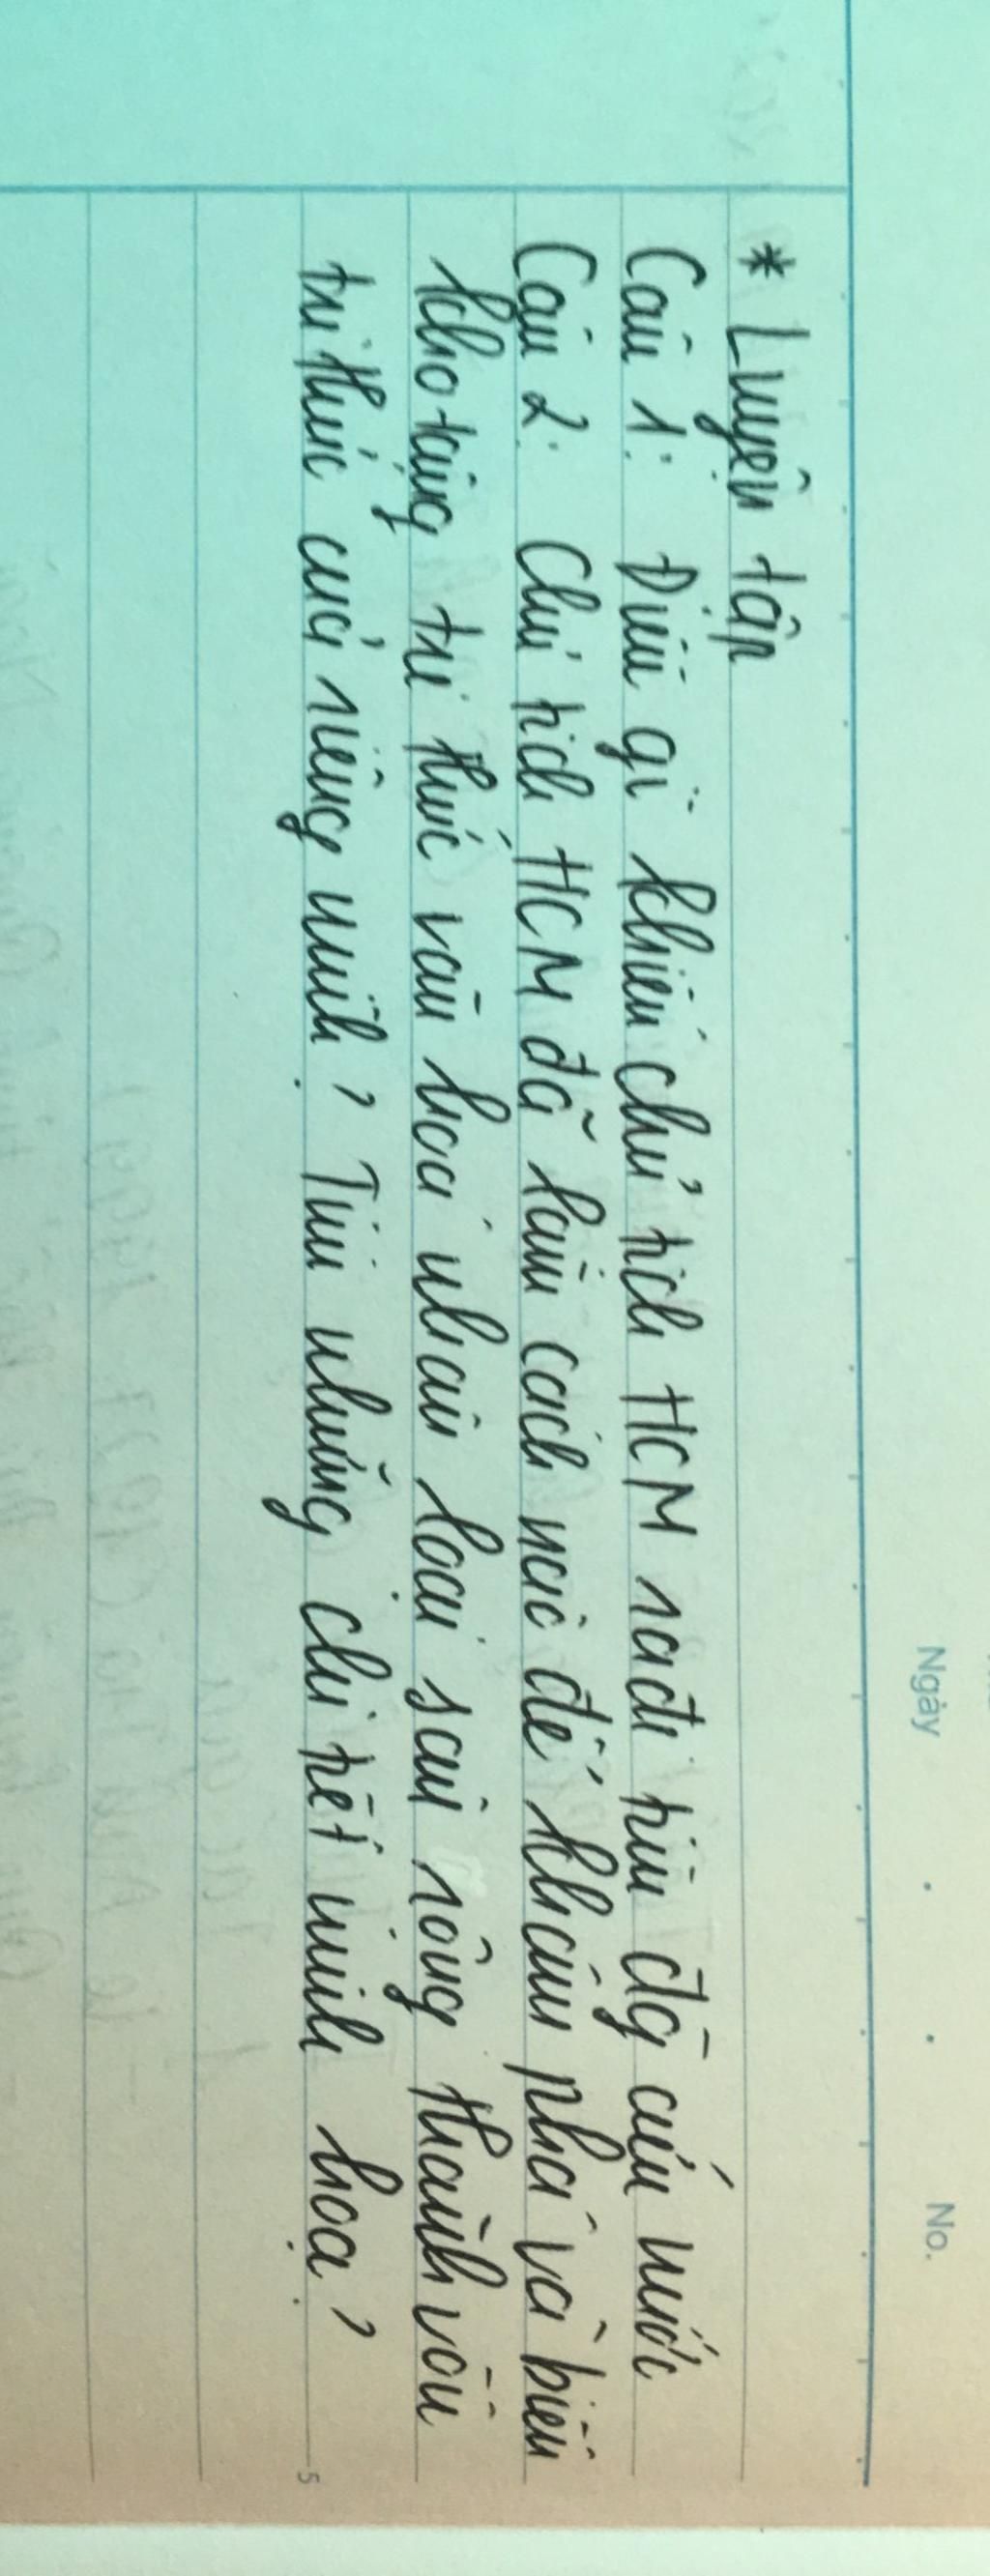 Ngày . . No.
* Luyện tập
Câu 1: Điều gì khiến chủ tịch HCM ra đi tìm đg cứu nước
Câu 2: Chủ tịch HCM đã làm cách nào để khám phá và biến
kho tàng tri thức văn hoá nhân loại sâu rộng thành vốn
tri thức của riêng mình? Tìm những chi tiết minh hoạ?
5